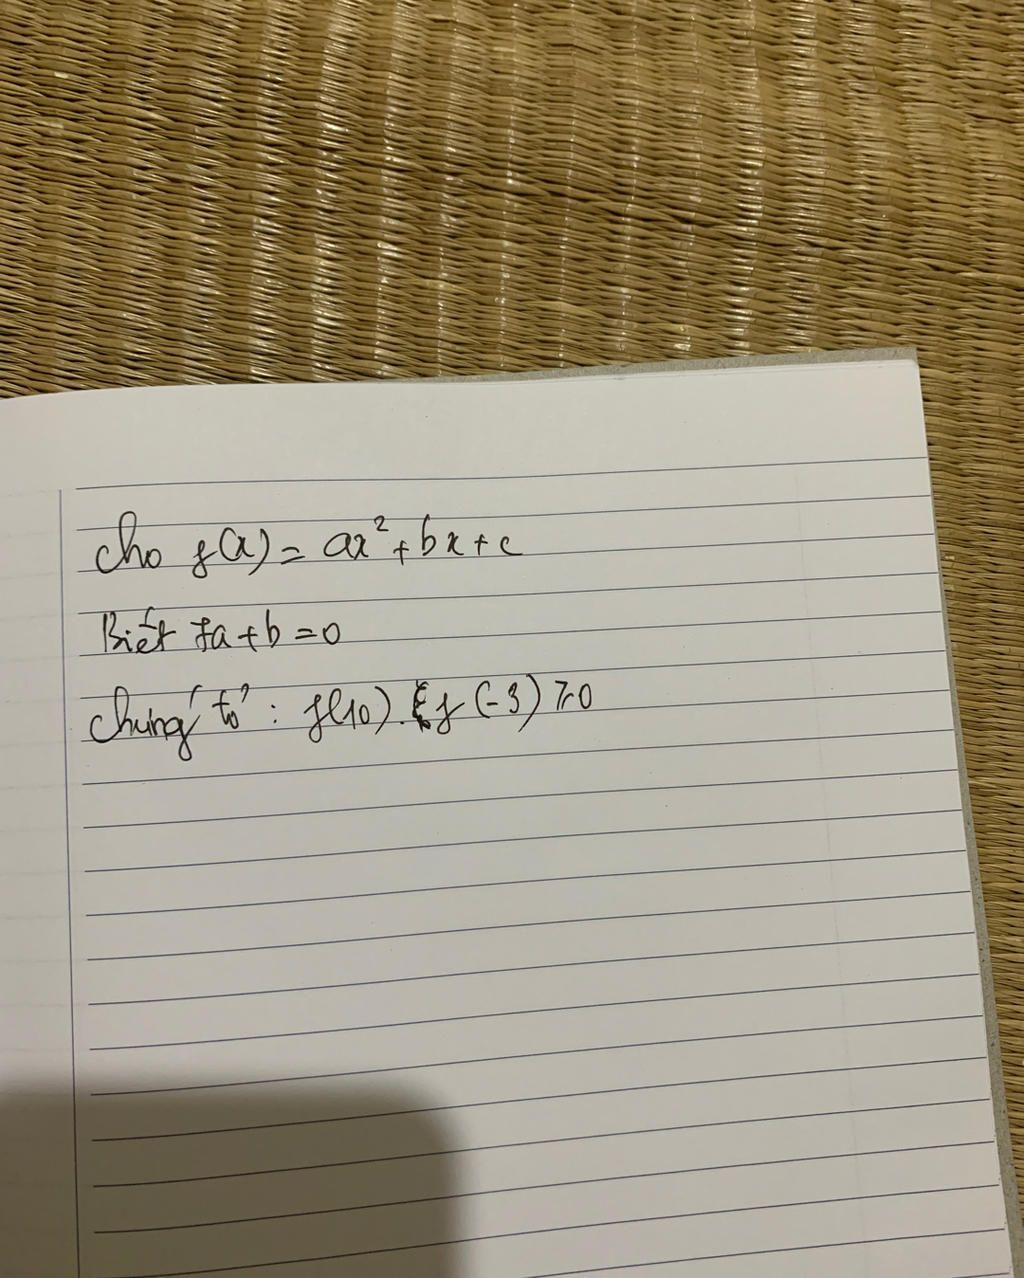 Cho f(x) = ax² + bx + c
Biết 7a + b = 0
Chứng tỏ : f(10) . f(-3) ≥ 0